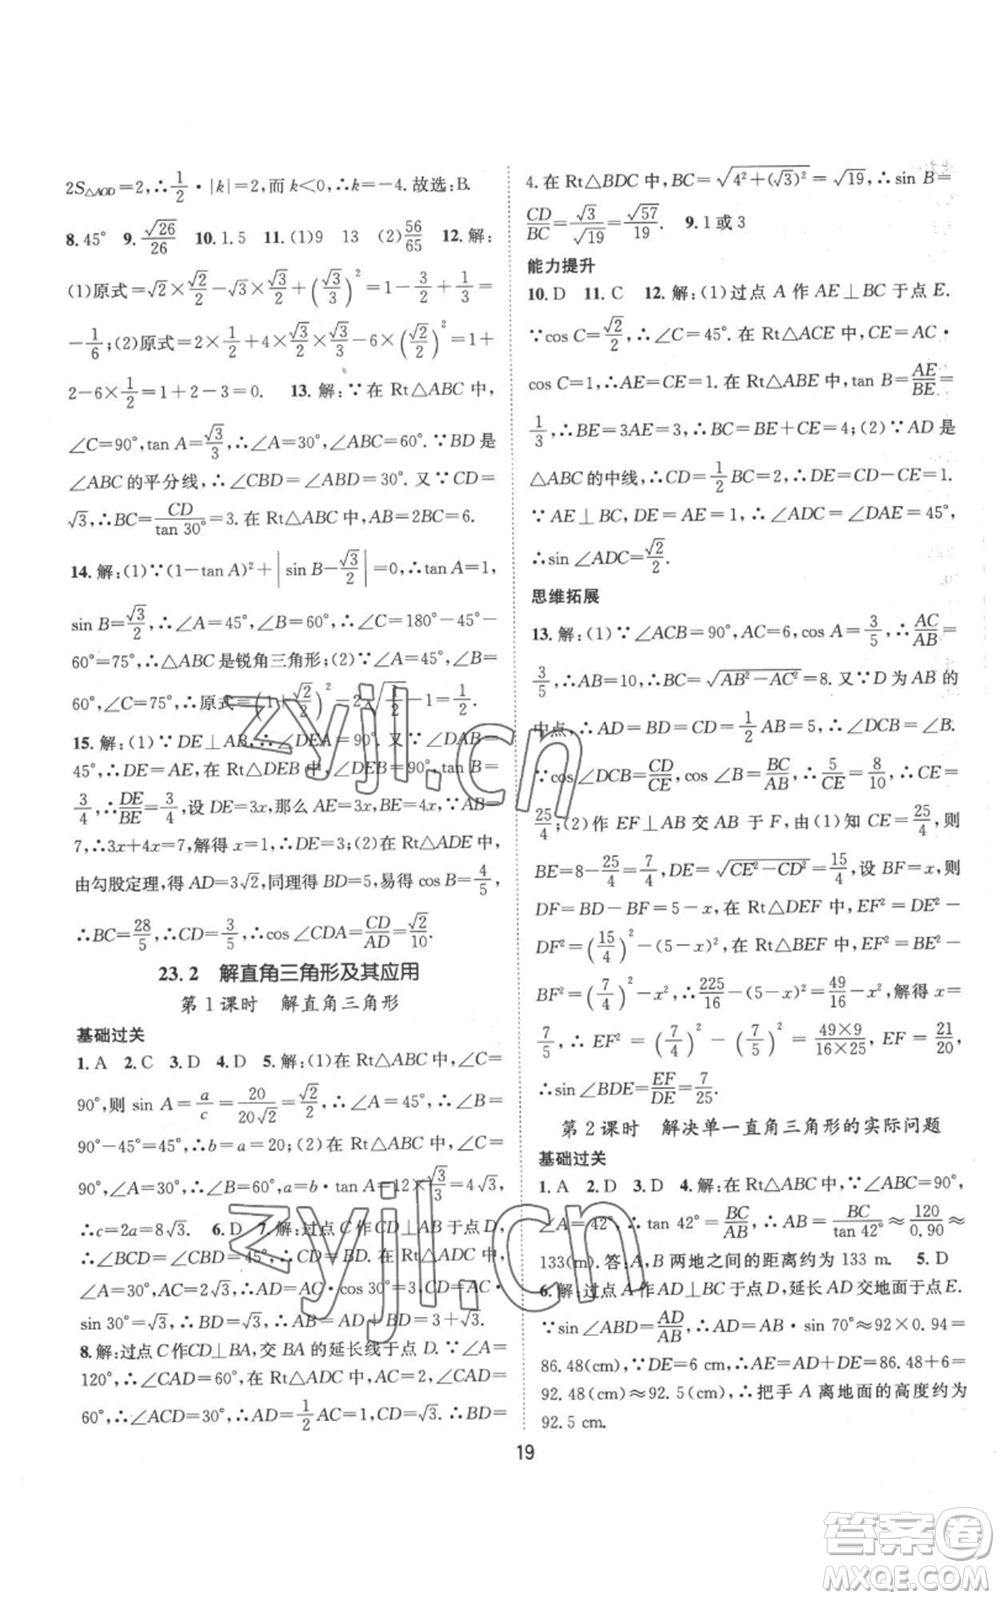 2S△AOD=2,∴1/2·|k|=2,而 k<0,∴k=-4. 故选:B.
8. 45° 9. √26/26 10. 1.5 11. (1)9 13 (2)56/65 12. 解:
(1)原式=√2×√2/2-√3×√3/2+(√3/3)²=1-3/2+1/3=
-1/6;(2)原式=2×1/2+4×√3/2×√3/3-6×(√2/2)²=1+
2-6×1/2=1+2-3=0. 13. 解:∵在 Rt△ABC 中,
∠C=90°,tan A=√3/3,∴∠A=30°,∠ABC=60°. ∵BD 是
∠ABC 的平分线,∴∠CBD=∠ABD=30°. 又∵CD=
√3,∴BC=CD/tan 30°=3. 在 Rt△ABC 中,∴AB=2BC=6.
14. 解:(1)∵(1-tan A)²+|sin B-√3/2|=0,∴tan A=1,
sin B=√3/2,∴∠A=45°,∠B=60°,∴∠C=180°-45°-
60°=75°,∴△ABC 是锐角三角形;(2)∵∠A=45°,∠B=
60°,∠C=75°,∴原式=(1+√2/2)²-2√1/2-1=1/2.
15. 解:(1)∵DE⊥AB,∴∠DEA=90°. 又∵∠DAB=
45°,∴DE=AE,在 Rt△DEB 中,∠DEB=90°,tan B=
3/4,∴DE/BE=3/4,设 DE=3x,那么 AE=3x,BE=4x,∵AB=
7,∴3x+4x=7,∴x=1,∴DE=3,∵在 Rt△ADE 中,
由勾股定理,得 AD=3√2,同理得 BD=5,易得 cos B=4/5,
∴BC=28/5,∴CD=3/5,∴cos ∠CDA=CD/AD=√2/10.
23.2 解直角三角形及其应用
第 1 课时 解直角三角形
基础过关
1. A 2. C 3. D 4. D 5. 解:(1)在 Rt△ABC 中,∠C=
90°,则 sin A=a/c=20/20√2=√2/2,∴∠A=45°,∴∠B=
90°-45°=45°,∴b=a=20;(2)在 Rt△ABC 中,∠C=
90°,∠A=30°,∴∠B=60°,a=b·tan A=12×√3/3=4√3,
∴c=2a=8√3. 6. D 7. 解:过点 C 作 CD⊥AB 于点 D,
∴∠BCD=∠CBD=45°,∴CD=BD. 在 Rt△ACD 中,
∠A=30°,AC=2√3,∴AD=AC·cos 30°=3,CD=AC·
sin 30°=√3,∴AB=AD+BD=AD+CD=3+√3.
8. 解:过点 C 作CD⊥BA,交 BA 的延长线于点 D. ∵∠A=
120°,∴∠CAD=60°. 在 Rt△ADC 中,AC=2,∠CAD=
60°,∴∠ACD=30°,∴AD=1/2AC=1,∴CD=√3. ∴BD=
4. 在 Rt△BDC 中,BC=√4²+(√3)²=√19,∴sin B=
CD/BC=√3/√19=√57/19. 9. 1 或 3
能力提升
10. D 11. C 12. 解:(1)过点 A 作 AE⊥BC 于点 E.
∵cos C=√2/2,∴∠C=45°. 在 Rt△ACE 中,CE=AC·
cos C=1,∴AE=CE=1. 在 Rt△ABE 中,tan B=AE/BE=
1/3,∴BE=3AE=3,∴BC=BE+CE=4;(2)∵AD 是
△ABC 的中线,∴CD=1/2BC=2,∴DE=CD-CE=1.
∵AE⊥BC,DE=AE=1,∴∠ADC=∠DAE=45°,
∴sin ∠ADC=√2/2.
思维拓展
13. 解:(1)∵∠ACB=90°,AC=6,cos A=3/5,∴AC/AB=
3/5,∴AB=10,∴BC=√AB²-AC²=8. 又∵D 为 AB 的
中点,∴AD=BD=CD=1/2AB=5,∴∠DCB=∠B.
∵cos ∠DCB=CD/CE,cos ∠B=BC/AB,∴5/CE=8/10,∴CE=
25/4;(2)作 EF⊥AB 交 AB 于 F,由(1)知 CE=25/4,则
BE=8-25/4=7/4,DE=√CE²-CD²=15/4,设 BF=x,则
DF=BD-BF=5-x,在 Rt△DEF 中,EF²=DE²-
DF²=(15/4)²-(5-x)²,在 Rt△BEF 中,EF²=BE²-
BF²=(7/4)²-x²,∴225/16-(5-x)²=49/16-x²,解得 x=
7/5,∴EF²=(7/4)²-(7/5)²=49×9/16×25,∴EF=21/20,
∴sin ∠BDE=EF/DE=7/25.
第 2 课时 解决单一直角三角形的实际问题
基础过关
1. A 2. D 3. D 4. 解:在 Rt△ABC 中,∵∠B=90°,
∠A=42°,∴tan 42°=BC/AB,∴AB=BC/tan 42°≈120/0.90≈
133(m). 答:A,B 两地之间的距离约为 133 m. 5. D
6. 解:过点 A 作 AD⊥BC 于点 D,延长 AD 交地面于点 E.
∵sin ∠ABD=AD/AB,∴AD=AB·sin 70°≈92×0.94=
86.48(cm);∵DE=6,∴AE=AD+DE=86.48+6=
92.48(cm)≈92.5(cm),∴把手 A 离地面的高度约为
92.5 cm.
19
zyjl.cn
zyjl.cn
答案卷
MXQE.COM